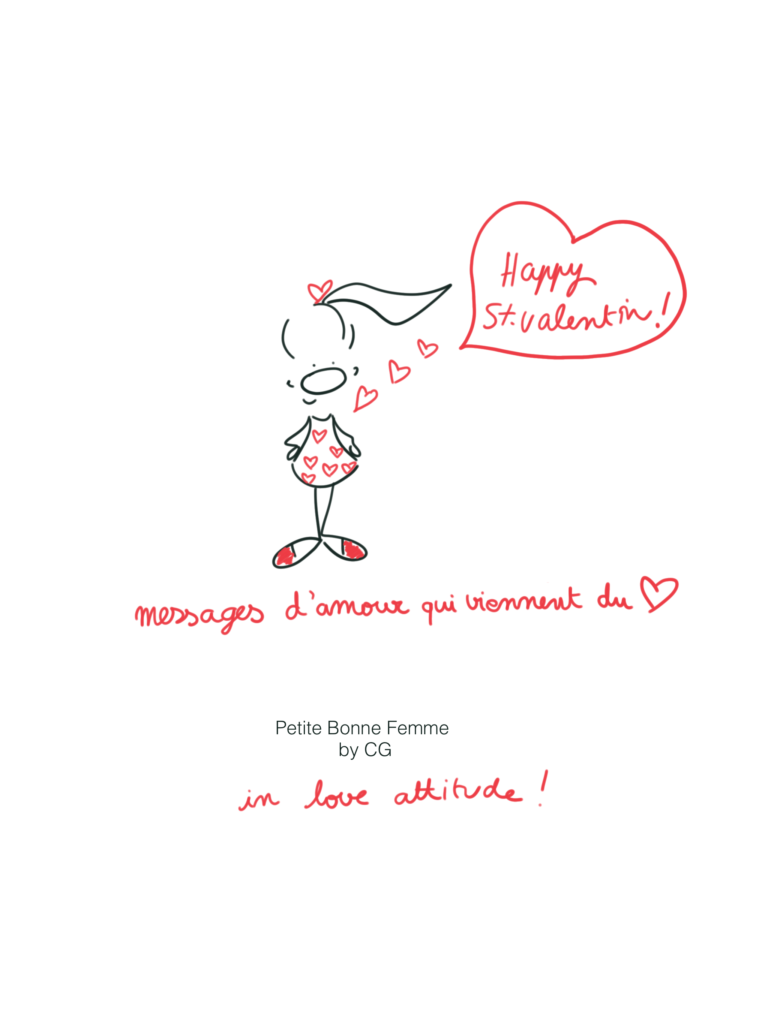 Happy
St.Valentin!
messages d'amour qui viennent du
Petite Bonne Femme
by CG
in love attitude !